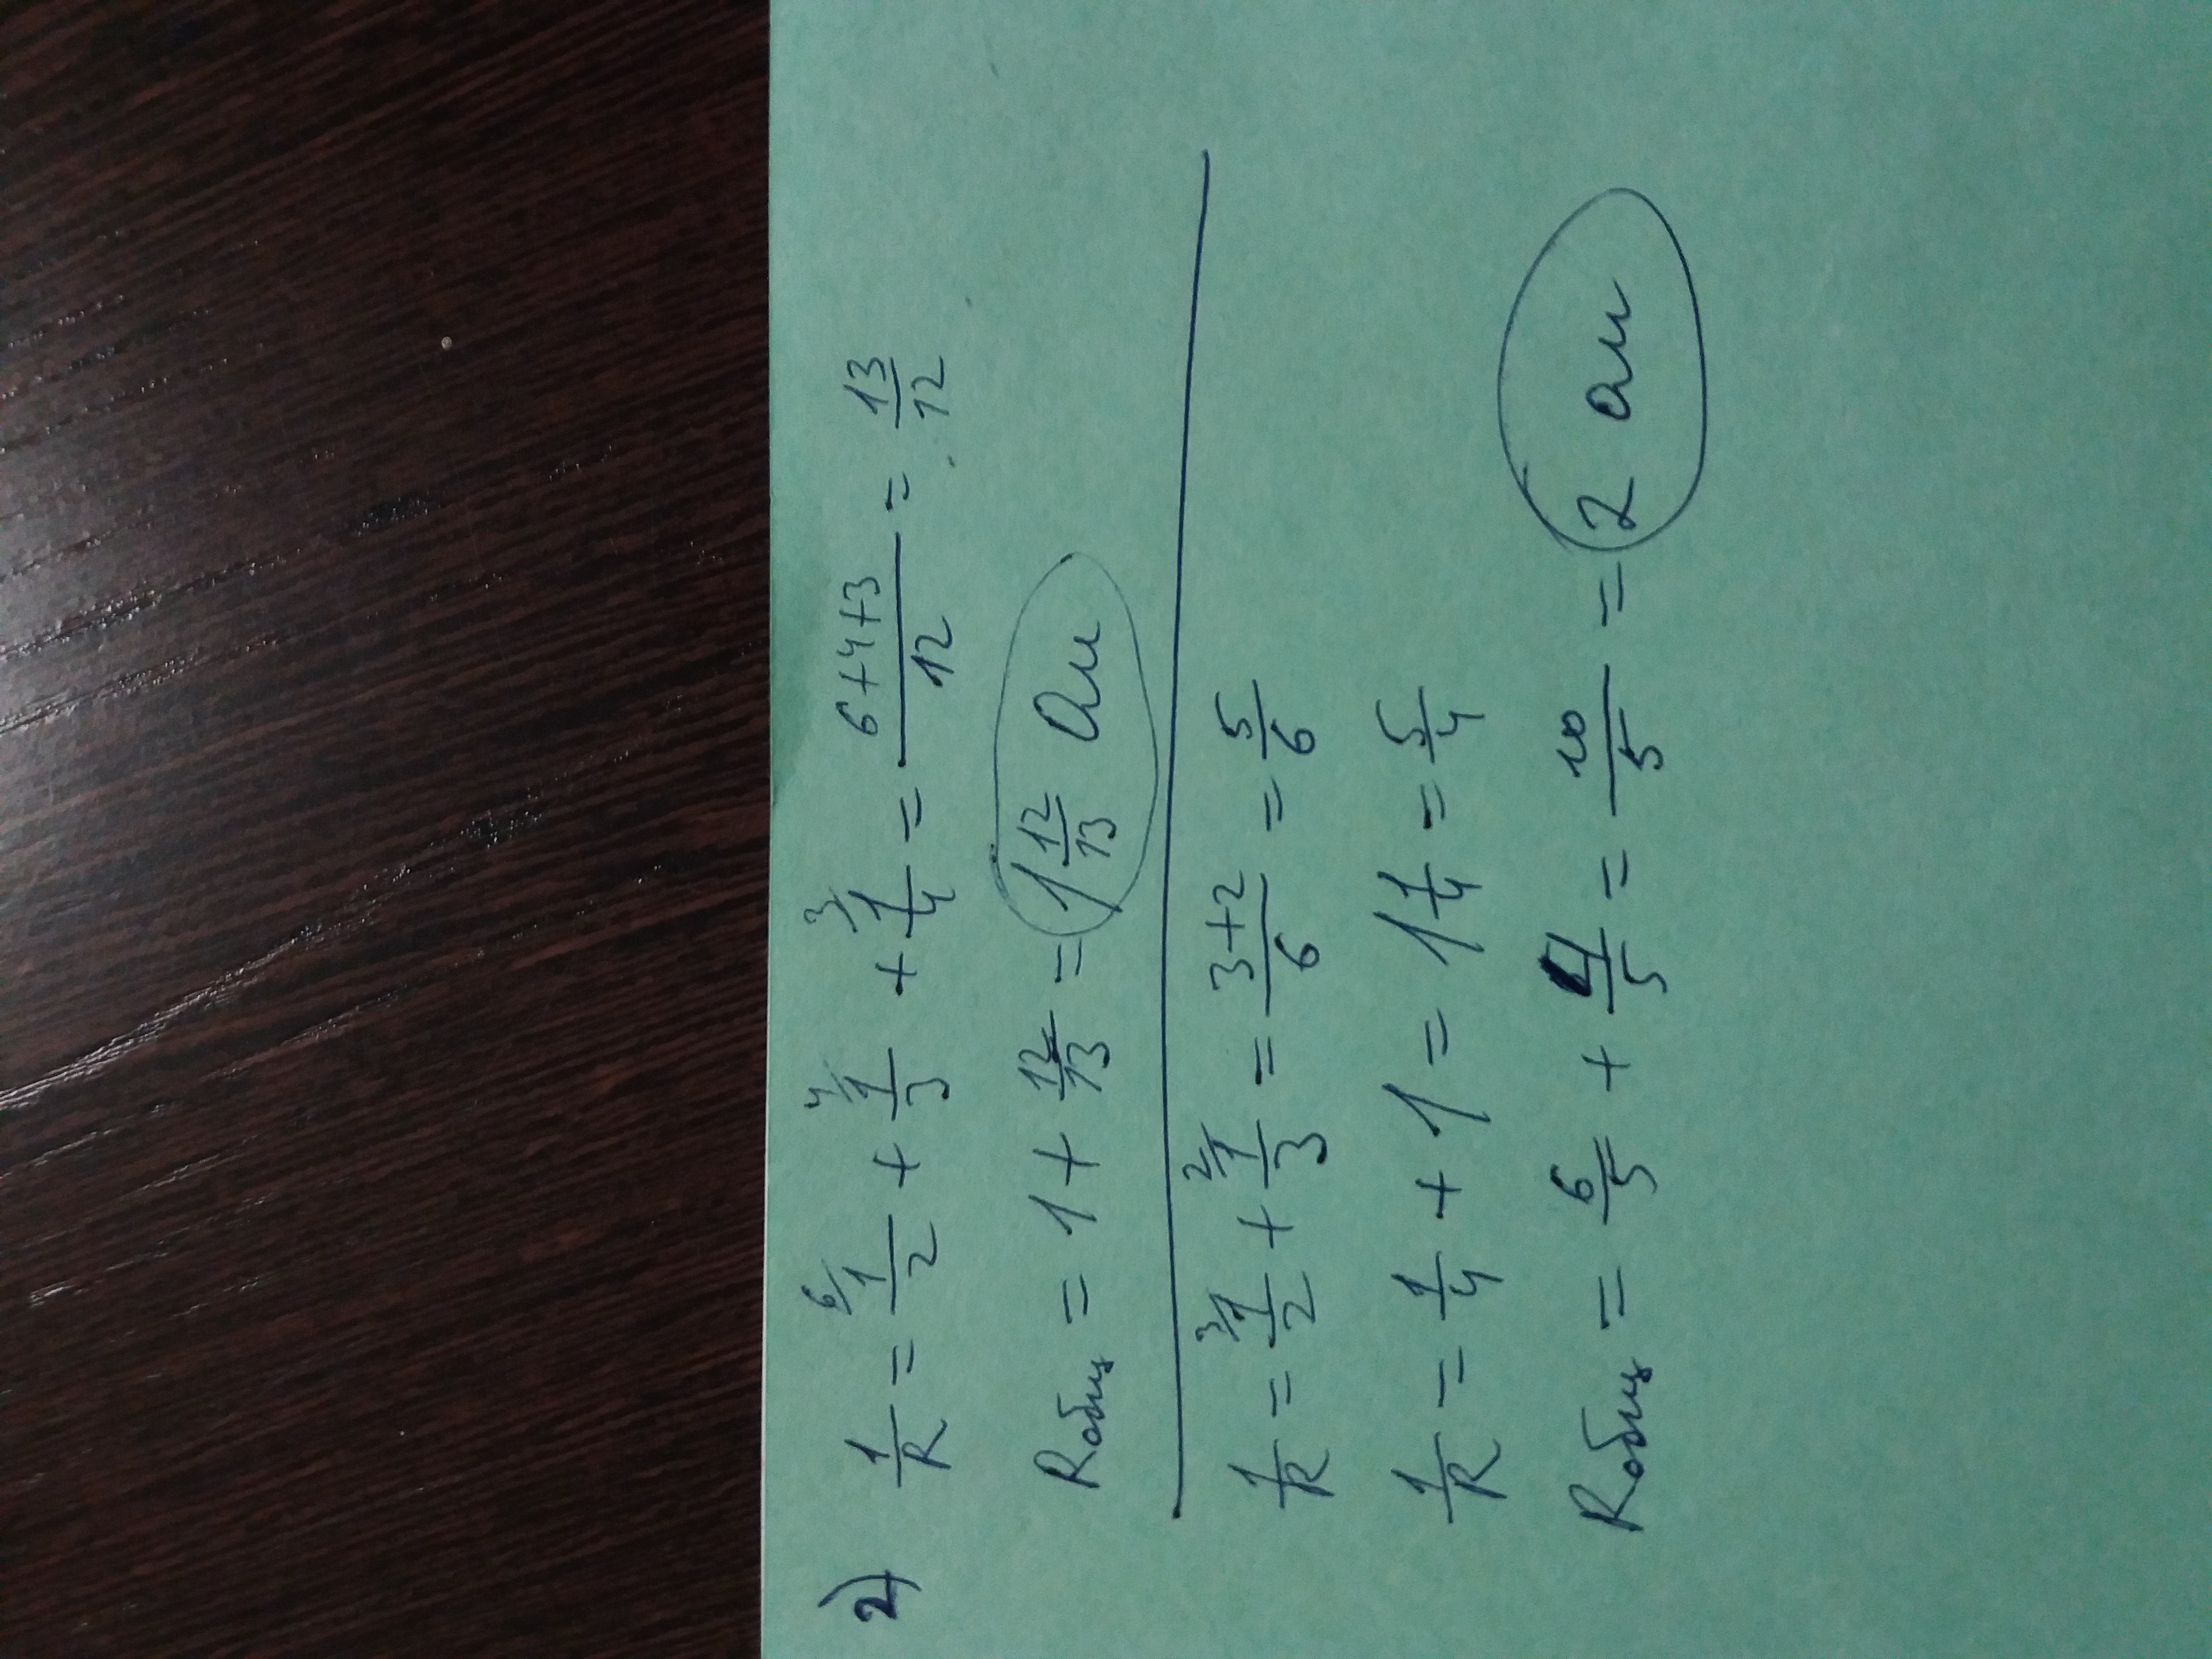 2) 1/R = ⁶⁄1/2 + ⁴⁄1/3 + ³⁄1/4 = 6+4+3/12 = 13/12
Rобщ = 1 + 12/13 = 1 12/13 Ом
1/R = ³⁄1/2 + ²⁄1/3 = 3+2/6 = 5/6
1/R = 1/4 + 1 = 1 1/4 = 5/4
Rобщ = 6/5 + 4/5 = 10/5 = 2 Ом